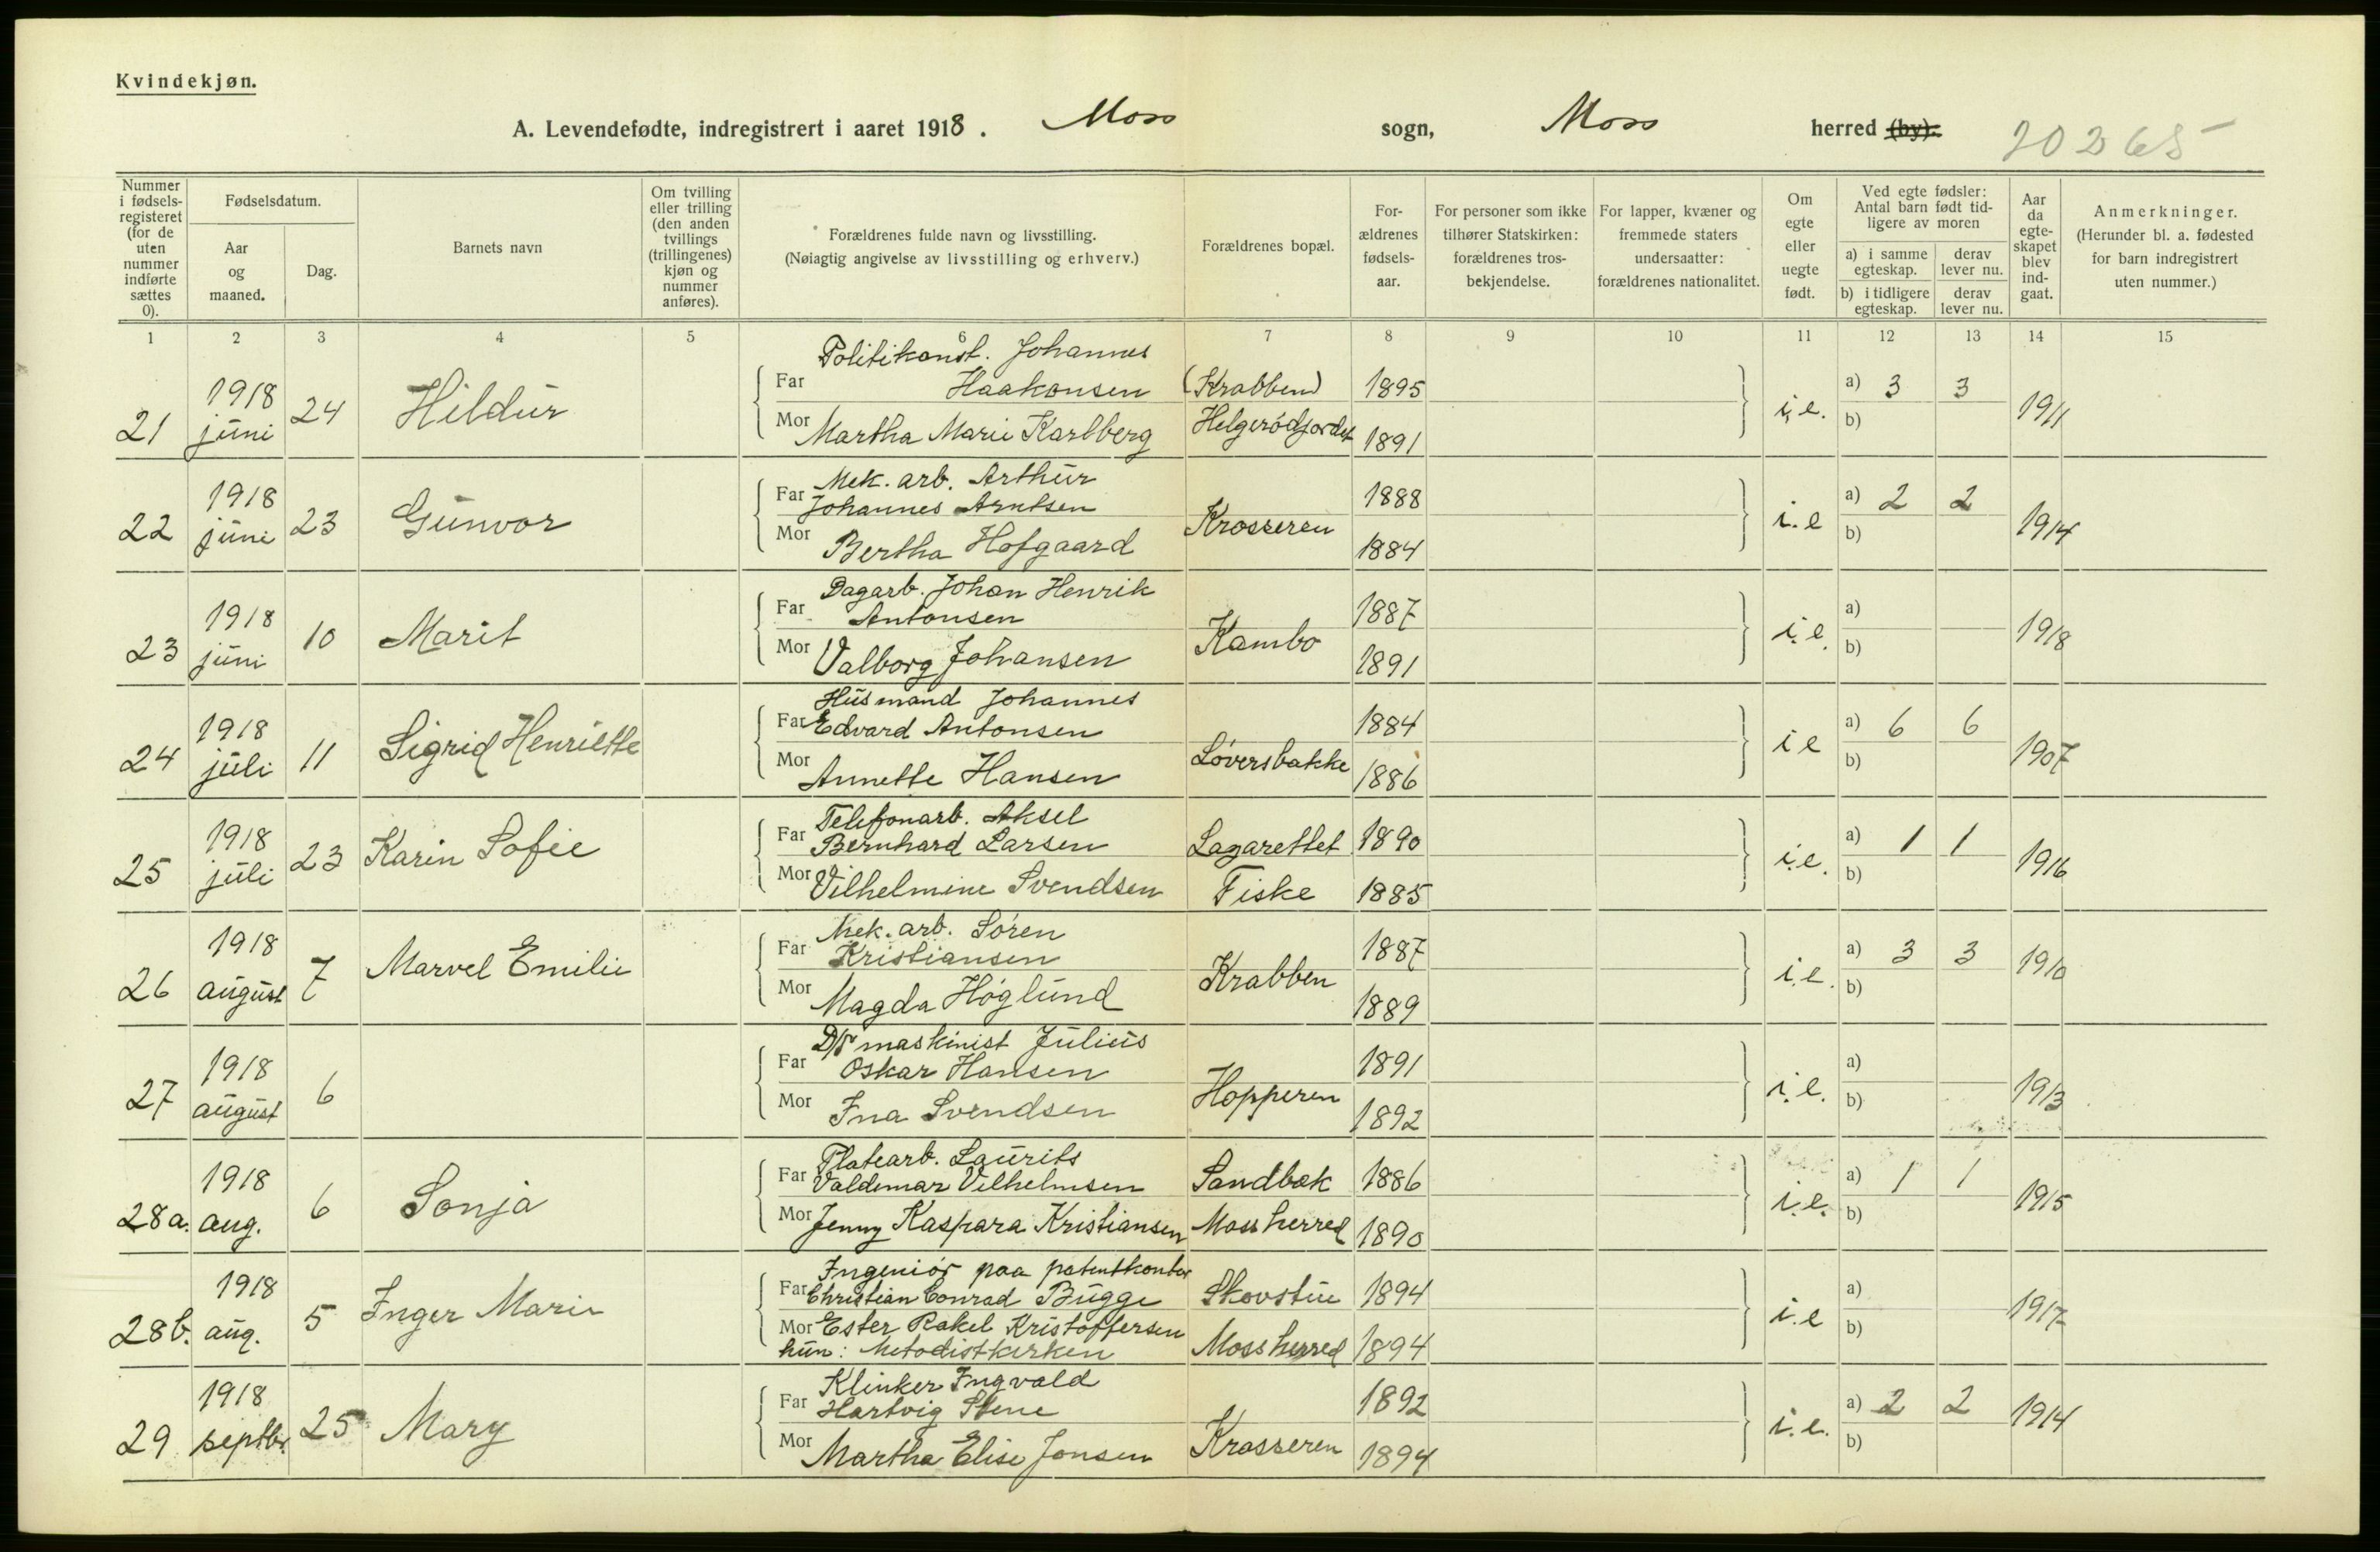 Kvindekjøn.
A. Levendefødte, indregistrert i aaret 1918. Moss sogn, Moss herred (by). 20265
Nummer i fødsels-registeret (for de uten nummer indførte sættes 0).
Fødselsdatum.
Aar og maaned.
Dag.
Barnets navn
Om tvilling eller trilling (den anden tvillings (trillingenes) kjøn og nummer anføres).
Forældrenes fulde navn og livsstilling.
(Nøiagtig angivelse av livsstilling og erhverv.)
Forældrenes bopæl.
For-ældrenes fødsels-aar.
For personer som ikke tilhører Statskirken: forældrenes tros-bekjendelse.
For lapper, kvæner og fremmede staters undersaatter: forældrenes nationalitet.
Om egte eller uegte født.
Ved egte fødsler: Antal barn født tid-ligere av moren
a) i samme egteskap.
derav lever nu.
b) i tidligere egteskap.
derav lever nu.
Aar da egte-skapet blev ind-gaat.
Anmerkninger.
(Herunder bl. a. fødested for barn indregistrert uten nummer.)
1 2 3 4 5 6 7 8 9 10 11 12 13 14 15
Politikonst. Johannes
Far Haakonsen (Krabben) 1895 a) 3 3
21 1918 juni 24 Hildur i.e. 1911
Mor Martha Marie Karlberg Helgerødjordet 1891 b)
Mek. arb. Arthur
Far Johannes Arntsen 1888 a) 2 2
22 1918 juni 23 Gunvor Krosseren i.e 1914
Mor Bertha Hofgaard 1884 b)
Dagarb. Johan Henrik
Far Antonsen 1887 a)
23 1918 juni 10 Marit Kambo i.e. 1918
Mor Valborg Johansen 1891 b)
Husmand Johannes
Far Edvard Antonsen 1884 a) 6 6
24 1918 juli 11 Sigrid Henriette Løversbakke i e 1907
Mor Annette Hansen 1886 b)
Telefonarb. Aksel
Far Bernhard Larsen Lagarettet 1890 a) 1 1
25 1918 juli 23 Karin Sofie i.e. 1916
Mor Vilhelmine Svendsen Fiske 1885 b)
Mek. arb. Søren
Far Kristiansen 1887 a) 3 3
26 1918 august 7 Marvel Emilie Krabben i.e. 1910
Mor Magda Høglund 1889 b)
D/S maskinist Julius
Far Oskar Hansen 1891 a)
27 1918 august 6 Hopperen i.e. 1913
Mor Ina Svendsen 1892 b)
Platearb. Laurits
Far Valdemar Vilhelmsen Sandbæk 1886 a) 1 1
28a. 1918 aug. 6 Sonja i.e. 1915
Mor Jenny Kaspara Kristiansen Moss herred 1890 b)
Ingeniør paa patentkontor
Far Christian Conrad Bugge Skovstue 1894 a)
28b. 1918 aug. 5 Inger Marie i.e 1917
Mor Ester Rakel Kristoffersen
hun: Metodistkirken Moss herred 1894 b)
Klinker Ingvald
Far Hartvig Stene 1892 a) 2 2
29 1918 septbr. 25 Mary Krosseren i.e. 1914
Mor Martha Elise Jonsen 1894 b)